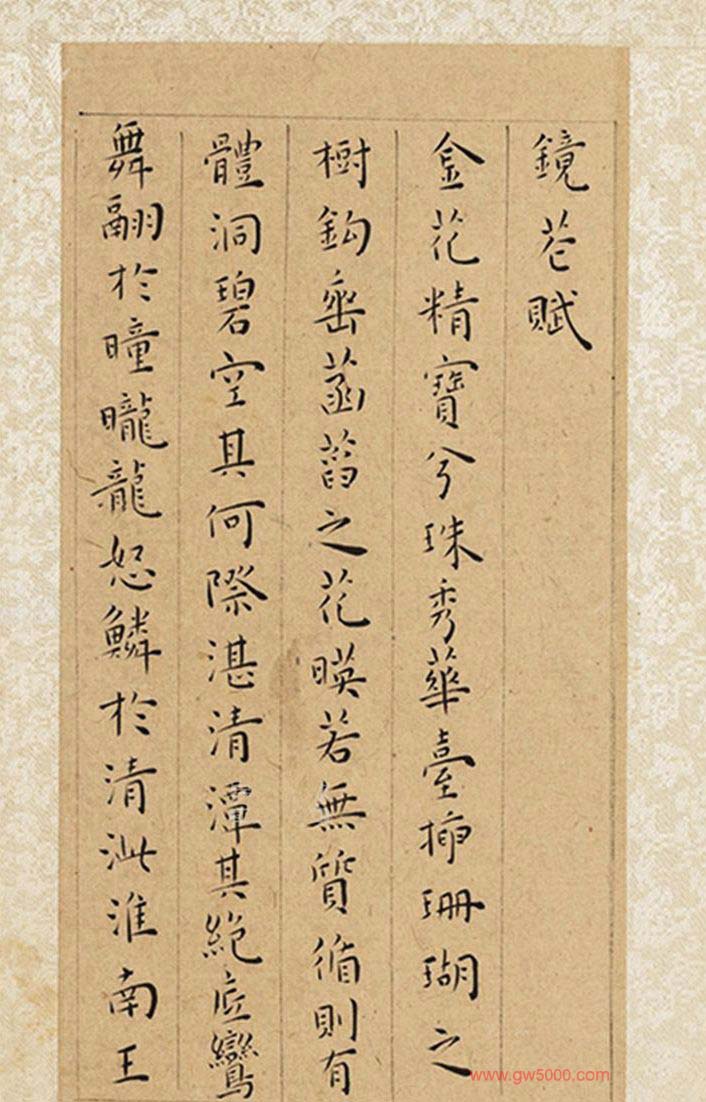 鏡賦
金花精寶兮珠秀華臺珊瑚之
樹鈎垂菡萏之花暎若無質循則有
體洞碧空其何際湛清潭其絕底鸞
舞翮於曈曨龍怒鱗於清泚淮南王
www.gw5000.com